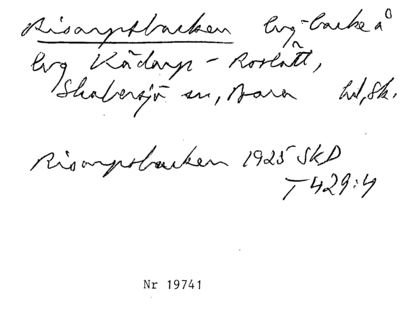 Risarpsbacken lvg-backe å
lvg Kådarp - Roslätt,
Skabersjö sn, Bara hd, Sk.
Risarpsbacken 1925 SkD
T 429:4
Nr 19741